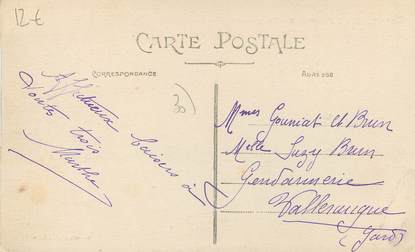 12€
CARTE POSTALE
CORRESPONDANCE
ADRESSE
30
Affectueux baisers à
toutes trois
Marthe
Mmes Gouniat et Brun
Melle Suzy Brun
Gendarmerie
Valleraugue
Gard